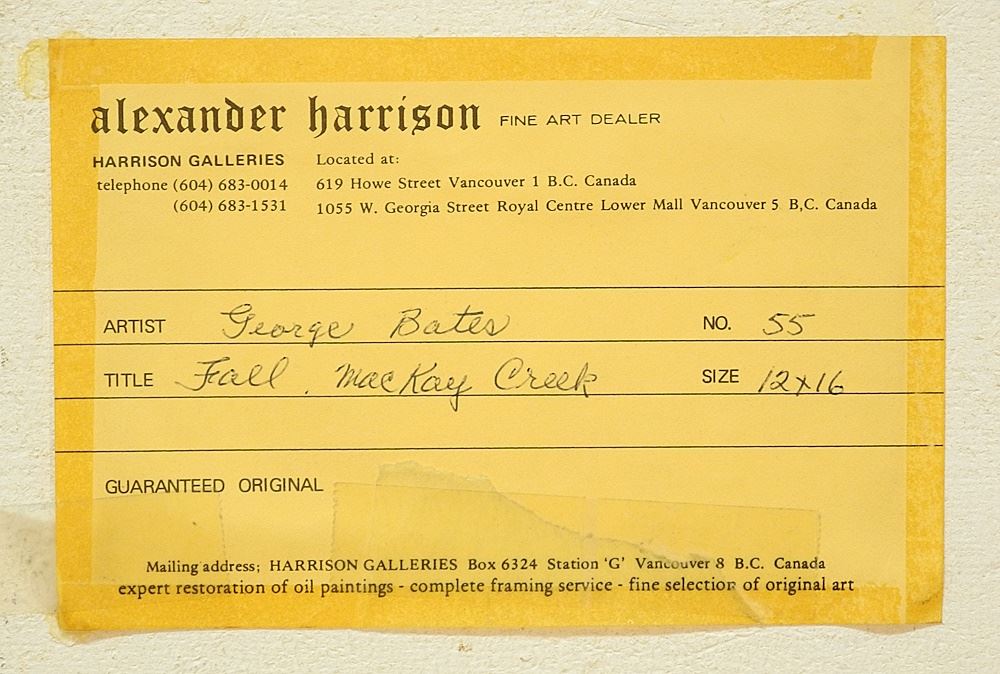 alexander harrison FINE ART DEALER
HARRISON GALLERIES Located at:
telephone (604) 683-0014 619 Howe Street Vancouver 1 B.C. Canada
(604) 683-1531 1055 W. Georgia Street Royal Centre Lower Mall Vancouver 5 B,C. Canada
ARTIST George Bates NO. 55
TITLE Fall, MacKay Creek SIZE 12x16
GUARANTEED ORIGINAL
Mailing address; HARRISON GALLERIES Box 6324 Station 'G' Vancouver 8 B.C. Canada
expert restoration of oil paintings - complete framing service - fine selection of original art